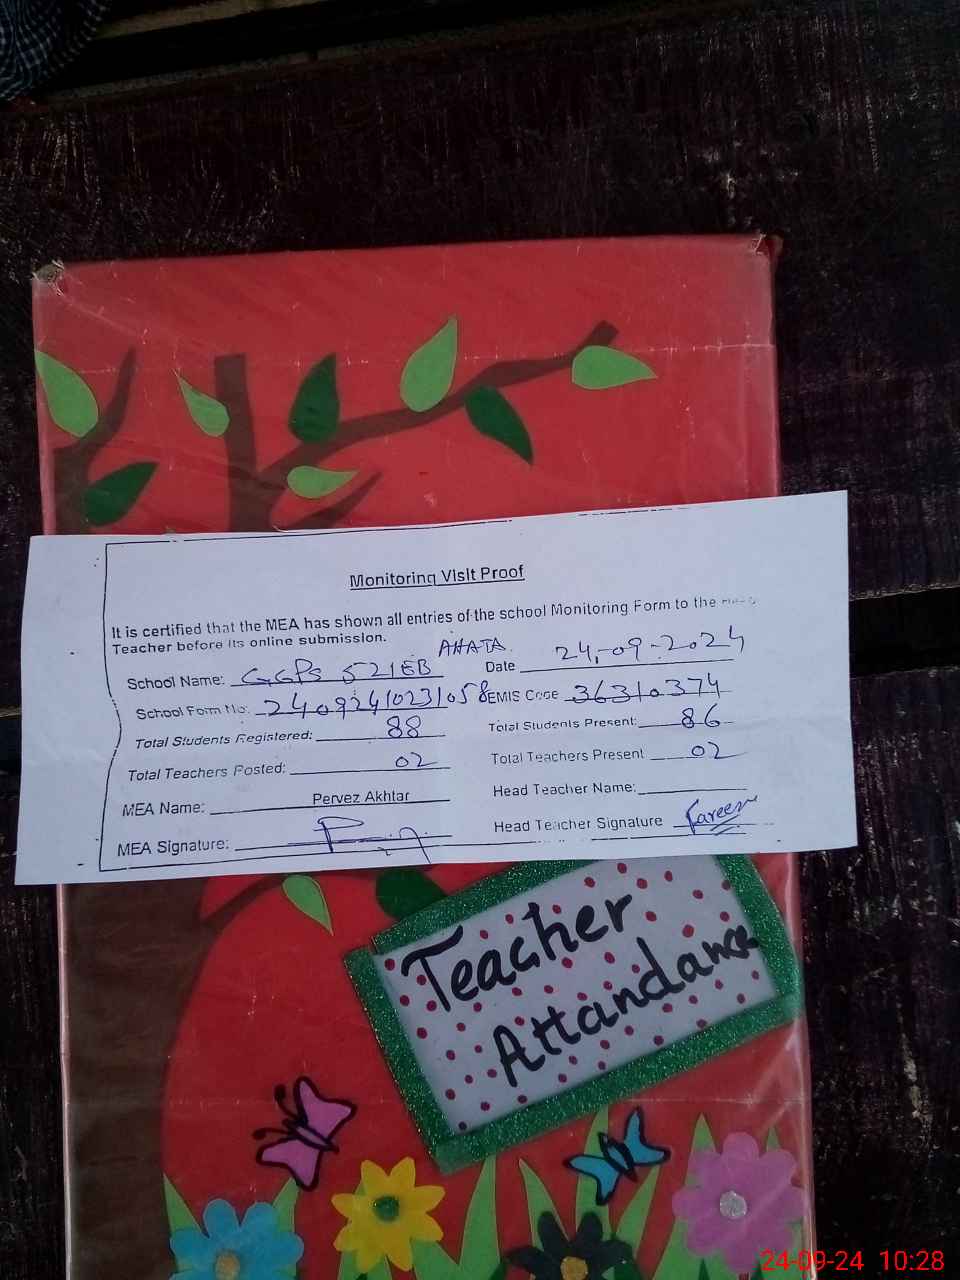 Monitoring Visit Proof
It is certified that the MEA has shown all entries of the school Monitoring Form to the
Teacher before its online submission.
School Name: GGPS 521EB AHATA Date 24-09-2024
School Form No: EMIS Code 36310374
Total Students Registered: 88 Total Students Present: 86
Total Teachers Posted: 02 Total Teachers Present 02
MEA Name: Pervez Akhtar Head Teacher Name:
MEA Signature: Head Teacher Signature
Teacher
Attandance
24-09-24 10:28